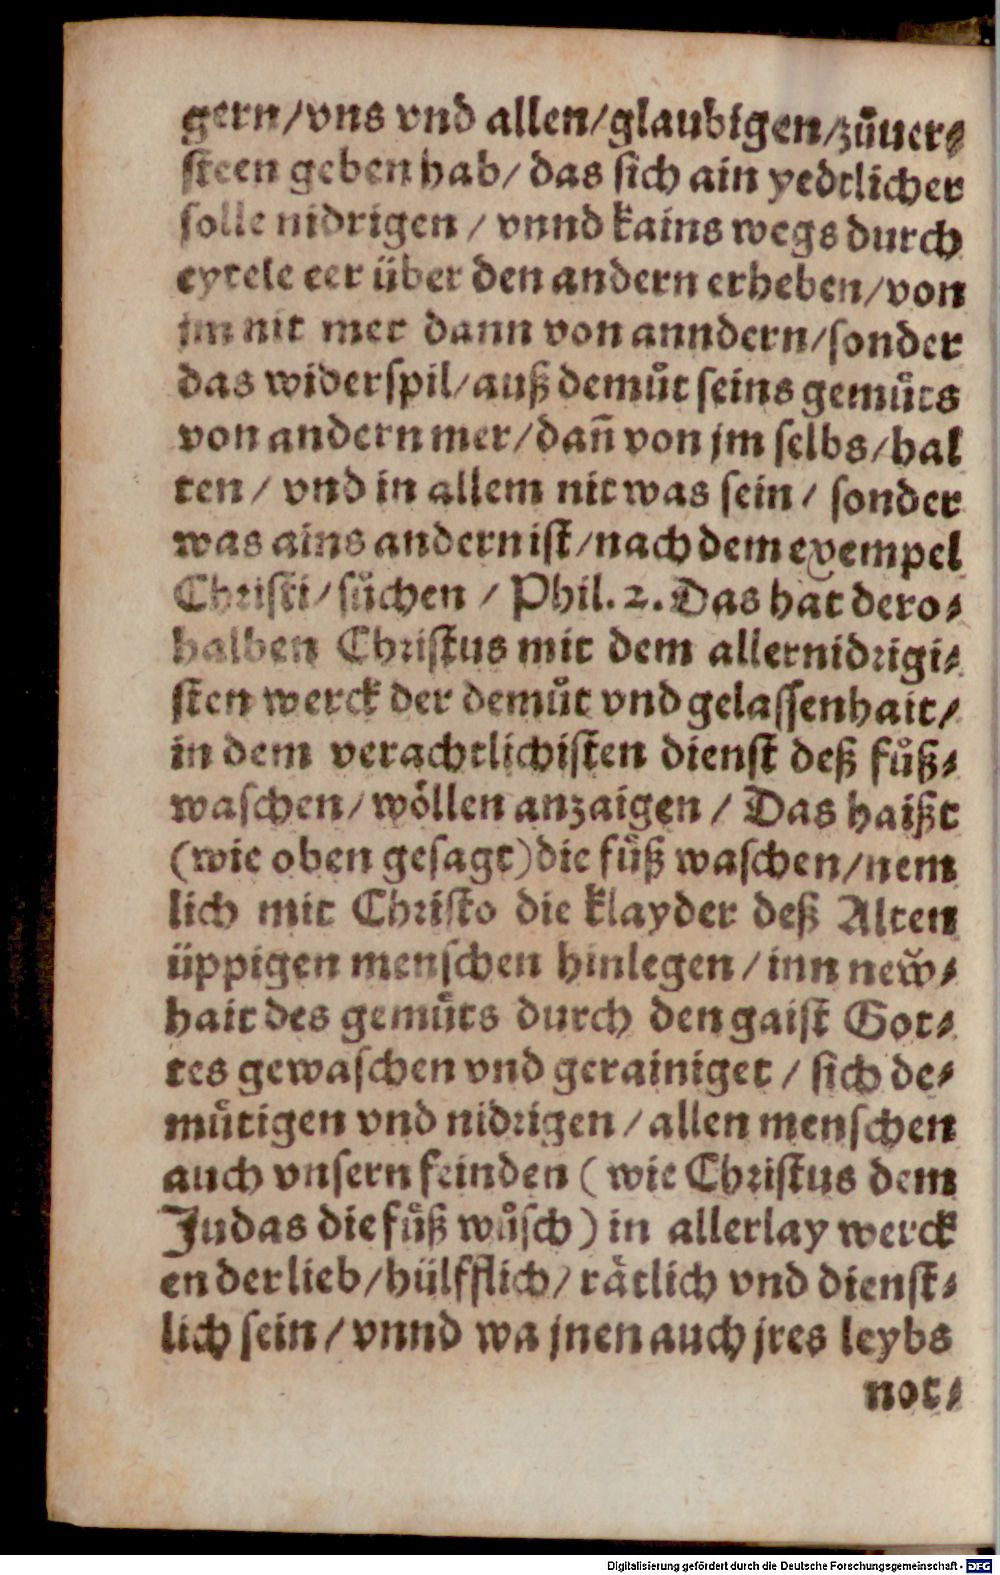 gern/vns vnd allen/glaubigen/zůuer⸗
steen geben hab/ das sich ain yedtlicher
solle nidrigen / vnnd kains wegs durch
eytele eer über den andern erheben/von
jm nit mer dann von anndern/sonder
das widerspil/auß demůt seins gemůts
von andern mer/dañ von jm selbs/hal
ten / vnd in allem nit was sein / sonder
was ains andern ist/nach dem exempel
Christi/ sůchen / Phil. 2. Das hat dero⸗
halben Christus mit dem allernidrigi⸗
sten werck der demůt vnd gelassenhait/
in dem verachtlichisten dienst deß fůß⸗
waschen/ wöllen anzaigen / Das haißt
(wie oben gesagt) die fůß waschen/nem
lich mit Christo die klayder deß Alten
üppigen menschen hinlegen / inn new̌⸗
hait des gemůts durch den gaist Got⸗
tes gewaschen vnd gerainiget / sich de⸗
můtigen vnd nidrigen / allen menschen
auch vnsern feinden ( wie Christus dem
Judas die fůß wůsch ) in allerlay werck
en der lieb/hülfflich/ rätlich vnd dienst⸗
lich sein / vnnd wa jnen auch jres leybs
not⸗
Digitalisierung gefördert durch die Deutsche Forschungsgemeinschaft - DFG